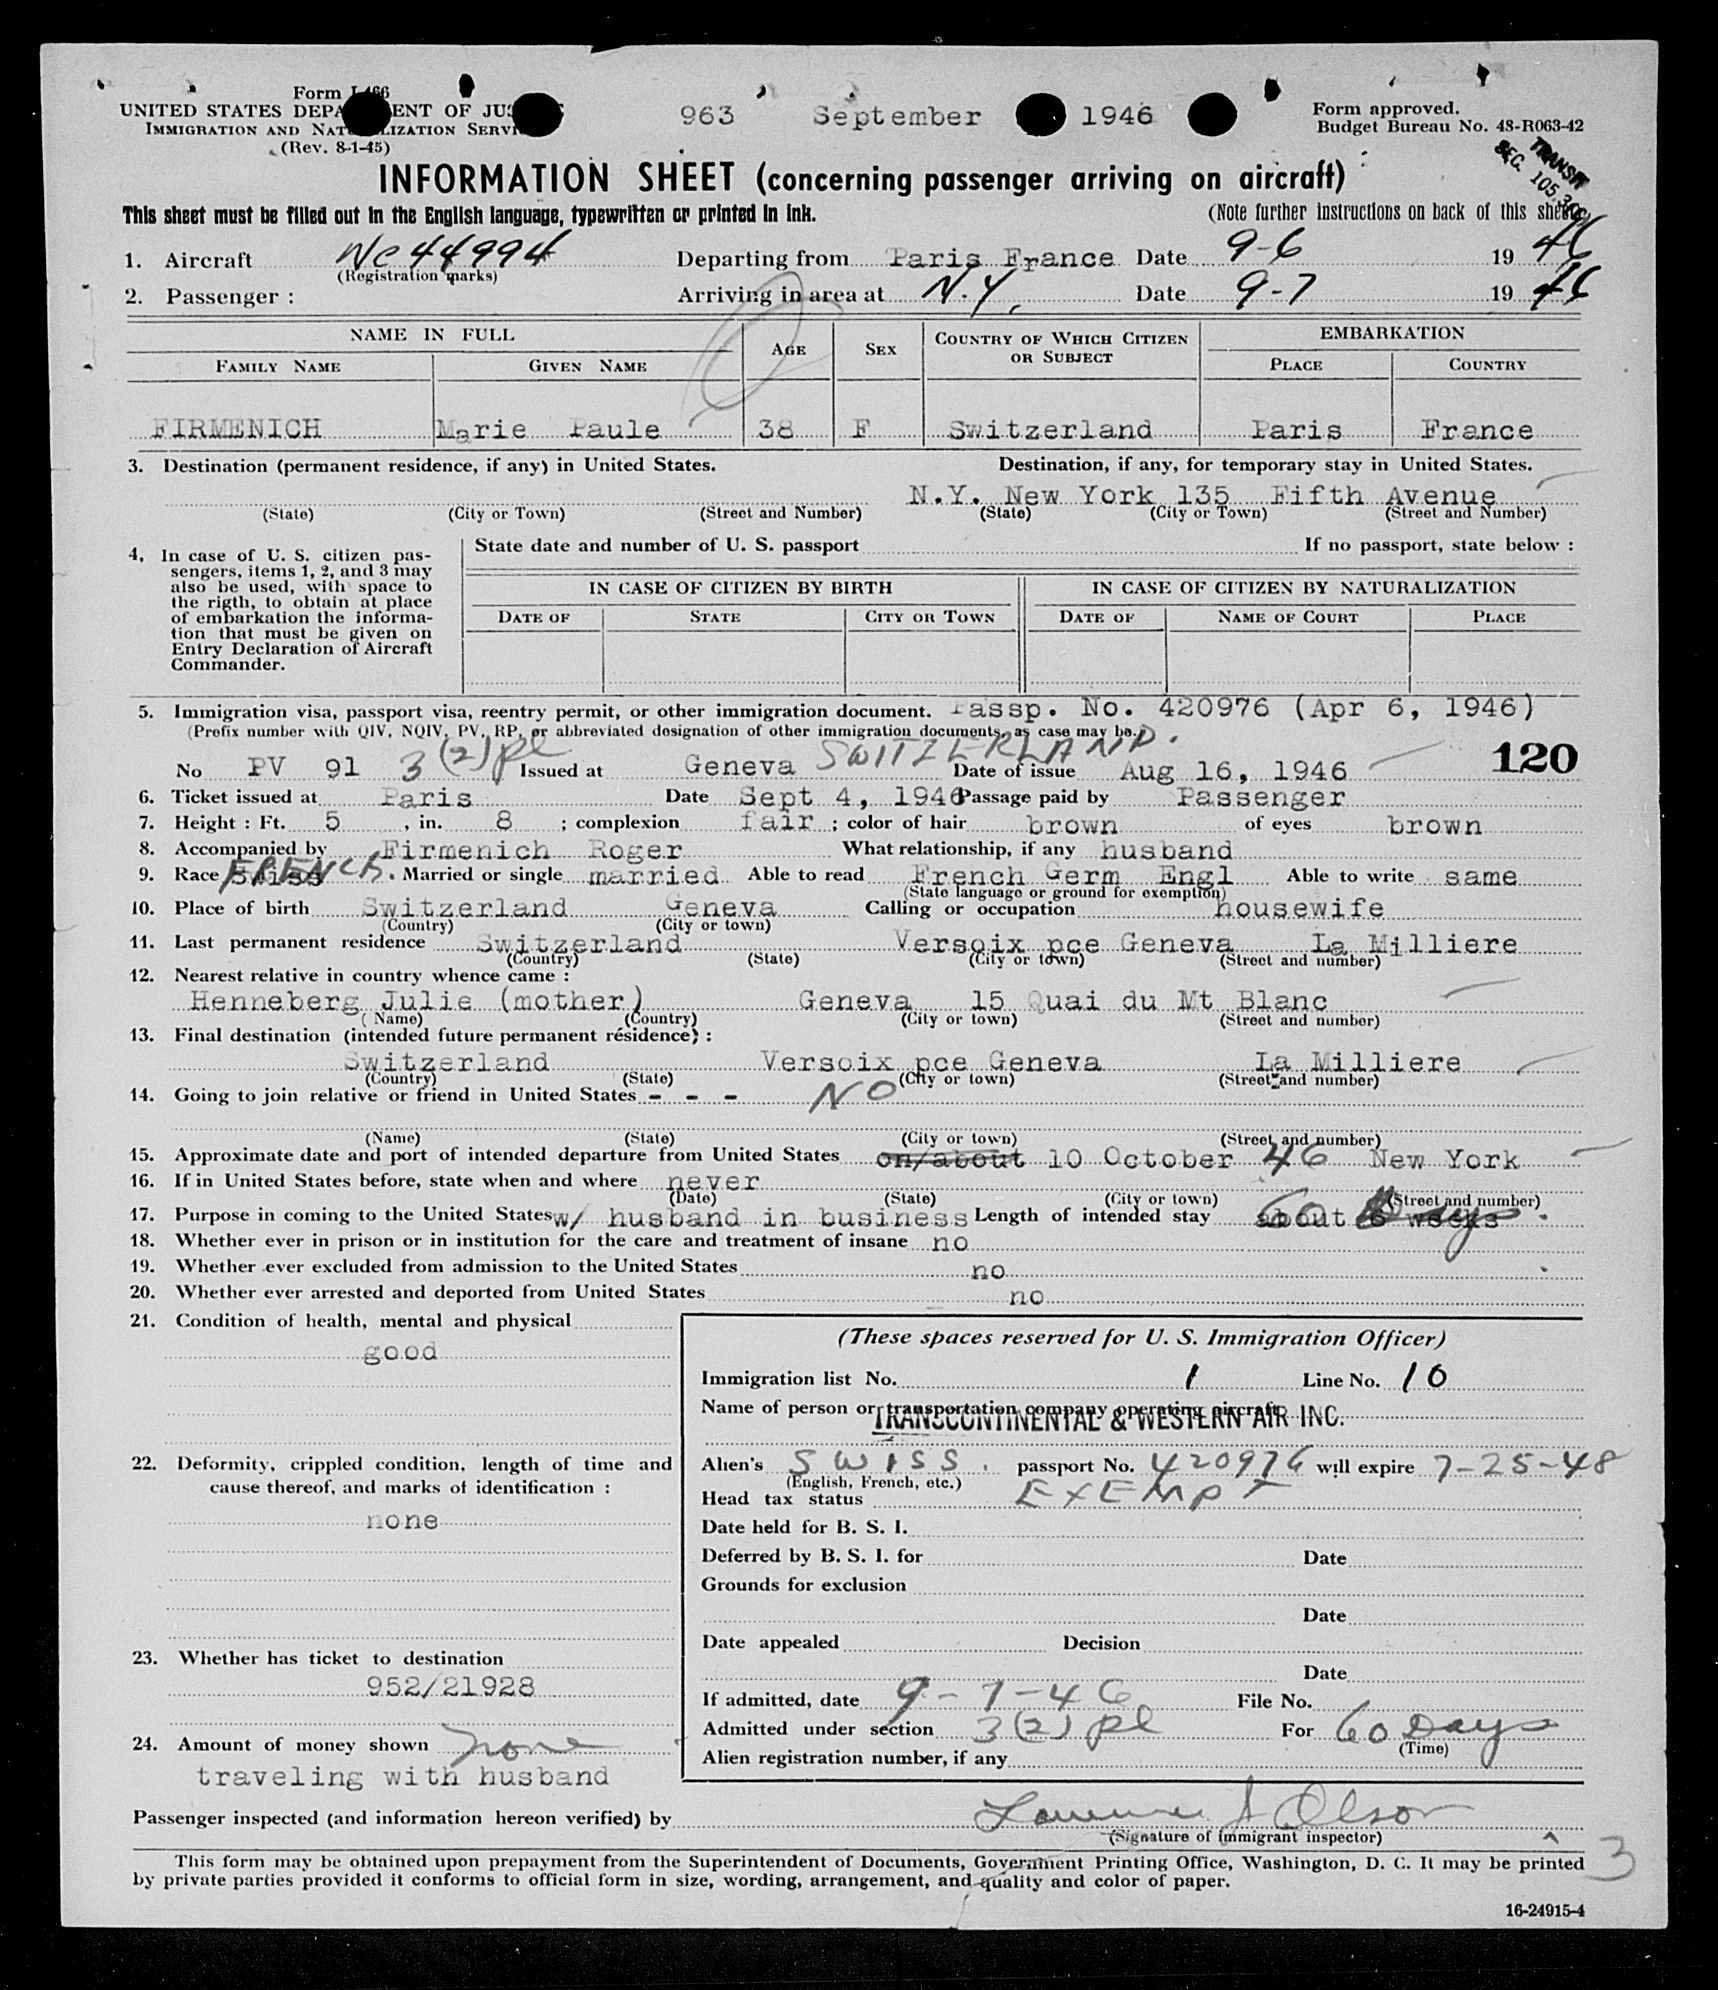 Form I-466
UNITED STATES DEPARTMENT OF JUSTICE
IMMIGRATION AND NATURALIZATION SERVICE
(Rev. 8-1-45)
963 September 1946
Form approved.
Budget Bureau No. 43-R063-42
TRANSIT
SEC. 105.3(c)
INFORMATION SHEET (concerning passenger arriving on aircraft)
This sheet must be filled out in the English language, typewritten or printed in ink. (Note further instructions on back of this sheet)
1. Aircraft NC 44994 Departing from Paris France Date 9-6 1946
(Registration marks)
2. Passenger : Arriving in area at N.Y. Date 9-7 1946
NAME IN FULL AGE SEX COUNTRY OF WHICH CITIZEN OR SUBJECT EMBARKATION
FAMILY NAME GIVEN NAME PLACE COUNTRY
FIRMENICH Marie Paule 38 F Switzerland Paris France
3. Destination (permanent residence, if any) in United States. Destination, if any, for temporary stay in United States.
N.Y. New York 135 Fifth Avenue
(State) (City or Town) (Street and Number) (State) (City or Town) (Street and Number)
4. In case of U. S. citizen pas-
sengers, items 1, 2, and 3 may
also be used, with space to
the rigth, to obtain at place
of embarkation the informa-
tion that must be given on
Entry Declaration of Aircraft
Commander.
State date and number of U. S. passport If no passport, state below :
IN CASE OF CITIZEN BY BIRTH IN CASE OF CITIZEN BY NATURALIZATION
DATE OF STATE CITY OR TOWN DATE OF NAME OF COURT PLACE
5. Immigration visa, passport visa, reentry permit, or other immigration document. Passp. No. 420976 (Apr 6, 1946)
(Prefix number with QIV, NQIV, PV, RP, or abbreviated designation of other immigration documents, as case may be.)
No PV 91 3(2)pl Issued at Geneva SWITZERLAND. Date of issue Aug 16, 1946 120
6. Ticket issued at Paris Date Sept 4, 1946 Passage paid by Passenger
7. Height : Ft. 5 , in. 8 ; complexion fair ; color of hair brown of eyes brown
8. Accompanied by Firmenich Roger What relationship, if any husband
9. Race Swiss FRENCH. Married or single married Able to read French Germ Engl Able to write same
(State language or ground for exemption)
10. Place of birth Switzerland Geneva Calling or occupation housewife
(Country) (City or town)
11. Last permanent residence Switzerland Versoix pce Geneva La Milliere
(Country) (State) (City or town) (Street and number)
12. Nearest relative in country whence came :
Henneberg Julie (mother) Geneva 15 Quai du Mt Blanc
(Name) (Country) (City or town) (Street and number)
13. Final destination (intended future permanent résidence) :
Switzerland Versoix pce Geneva La Milliere
(Country) (State) (City or town) (Street and number)
14. Going to join relative or friend in United States - - - NO
(Name) (State) (City or town) (Street and number)
15. Approximate date and port of intended departure from United States on/about 10 October 46 New York
16. If in United States before, state when and where never
(Date) (State) (City or town) (Street and number)
17. Purpose in coming to the United States w/ husband in business Length of intended stay about 6 weeks 60 Days.
18. Whether ever in prison or in institution for the care and treatment of insane no
19. Whether ever excluded from admission to the United States no
20. Whether ever arrested and deported from United States no
21. Condition of health, mental and physical
good
22. Deformity, crippled condition, length of time and
cause thereof, and marks of identification :
none
23. Whether has ticket to destination
952/21928
24. Amount of money shown none
traveling with husband
(These spaces reserved for U. S. Immigration Officer)
Immigration list No. 1 Line No. 10
Name of person or transportation company operating aircraft
TRANSCONTINENTAL & WESTERN AIR INC.
Alien's SWISS. passport No. 420976 will expire 7-25-48
(English, French, etc.)
Head tax status EXEMPT
Date held for B. S. I.
Deferred by B. S. I. for Date
Grounds for exclusion
Date
Date appealed Decision
Date
If admitted, date 9-7-46 File No.
Admitted under section 3(2)pl For 60 Days
(Time)
Alien registration number, if any
Passenger inspected (and information hereon verified) by Lawrence A Olson
(Signature of immigrant inspector)
This form may be obtained upon prepayment from the Superintendent of Documents, Government Printing Office, Washington, D. C. It may be printed
by private parties provided it conforms to official form in size, wording, arrangement, and quality and color of paper.
3
16-24915-4